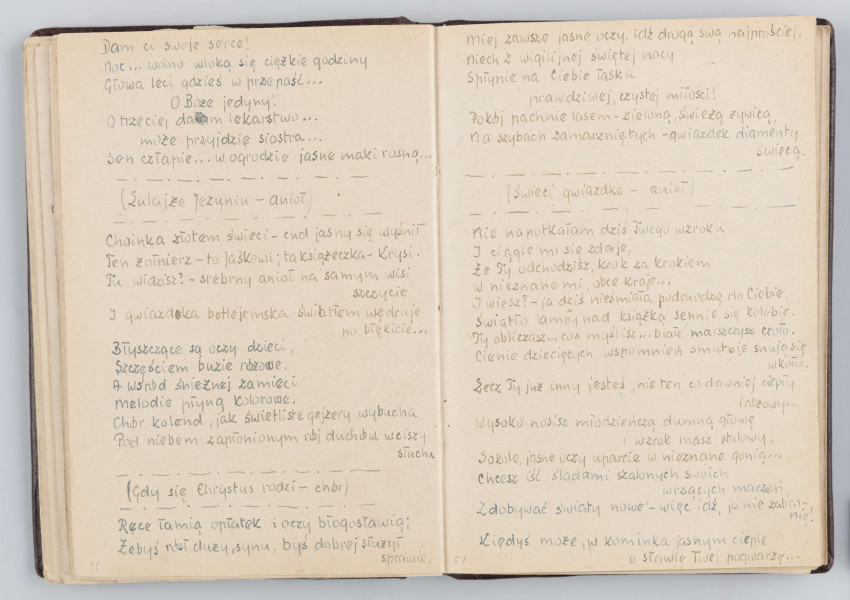 Dam ci swoje serce!
Noc... wolno wloką się ciężkie godziny
Głowa leci gdzieś w przepaść...
O Boże jedyny!
O trzeciej dałam lekarstwo...
może przyjdzie siostra...
Sen człapie... w ogrodzie jasne maki rosną...
(Lulajże Jezuniu – anioł)
Choinka złotem świeci – cud jasny się wyśnił
Ten żołnierz – to Jaśkowi; ta książeczka – Krysi.
Tu widzisz? – srebrny anioł na samym wisi
szczycie
I gwiazdka betlejemska światłem wędruje
po błękicie...
Błyszczące są oczy dzieci,
Szczęściem buzie różowe.
A wśród śnieżnej zamieci
Melodie płyną kolorowe.
Chór kolend, jak świetliste gejzery wybucha
Pod niebem zapłonionym rój duchów w ciszy
słucha
(Gdy się Chrystus rodzi – chór)
Ręce łamią opłatek i oczy błogosławią;
Żebyś rósł duży, synu, byś dobrej służył
sprawie,
56
Miej zawsze jasne oczy, idź drogą swą najprościej,
Niech z wigilijnej świętej nocy
Spłynie na Ciebie łaska
prawdziwej, czystej miłości!
Pokój pachnie lasem – zieloną, świeżą żywicą,
Na szybach zamarzniętych – gwiazdek diamenty
świecą.
(Świeci gwiazdka – anioł)
Nie napotkałam dziś Twego wzroku
I ciągle mi się zdaje,
Że Ty odchodzisz, krok za krokiem
W nieznane mi, obce kraje...
I wiesz? – ja dziś nieśmiało podchodzę do Ciebie.
Światło lampy nad książką sennie się kolebie.
Ty obliczasz... coś myślisz... białe marszczysz czoło.
Cienie dziecięcych wspomnień smutnie snują się
wkoło.
Lecz Ty już inny jesteś, nie ten co dawniej ciepły
i różowy...
Wysoko nosisz młodzieńczą dumną głowę
i wzrok masz stalowy,
Sokole, jasne oczy uparcie w nieznane gonią...
Chcesz iść śladami szalonych swoich
wrzących marzeń,
Zdobywać światy nowe – więc idź, ja nie zabro-
nię!
Kiedyś może, w kominka jasnym cieple
o sławie Twej pogwarzę...
57